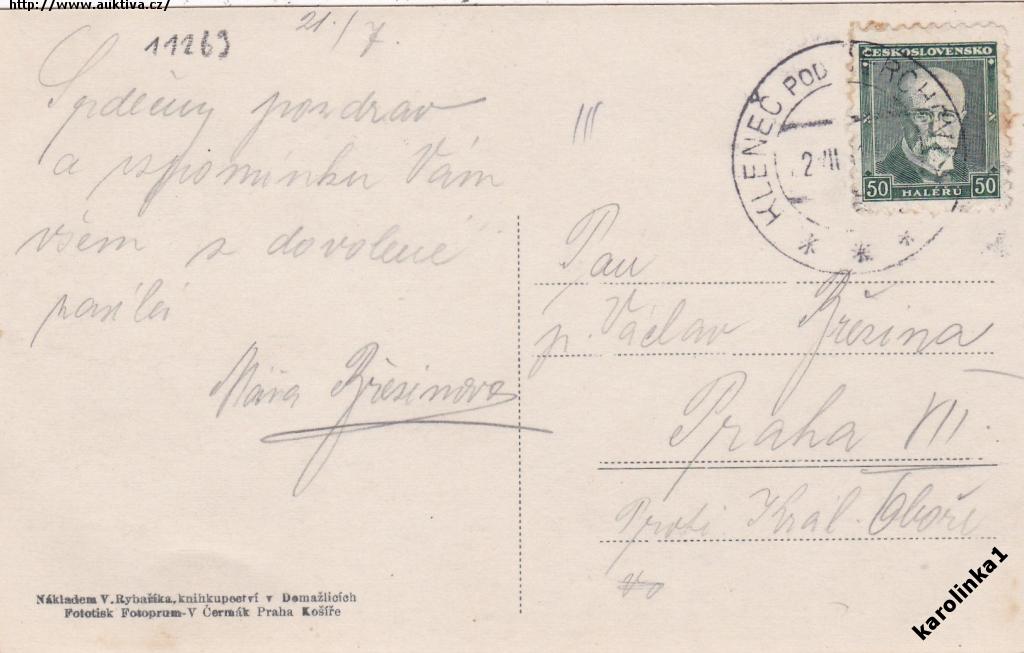 http://www.auktiva.cz/
11269
21./7.
Srdečný pozdrav
a vzpomínku Vám
všem s dovolené
zasílá
Máňa Březinova
III
KLENEČ POD ČERCHOVEM
ČESKOSLOVENSKO
50 HALÉŘŮ 50
Pan
p. Václav Březina
Praha VII.
Proti Král. Oboře
Nákladem V. Rybaříka, knihkupectví v Domažlicích
Fototisk Fotoprum-V Čermák Praha Košíře
karolinka1